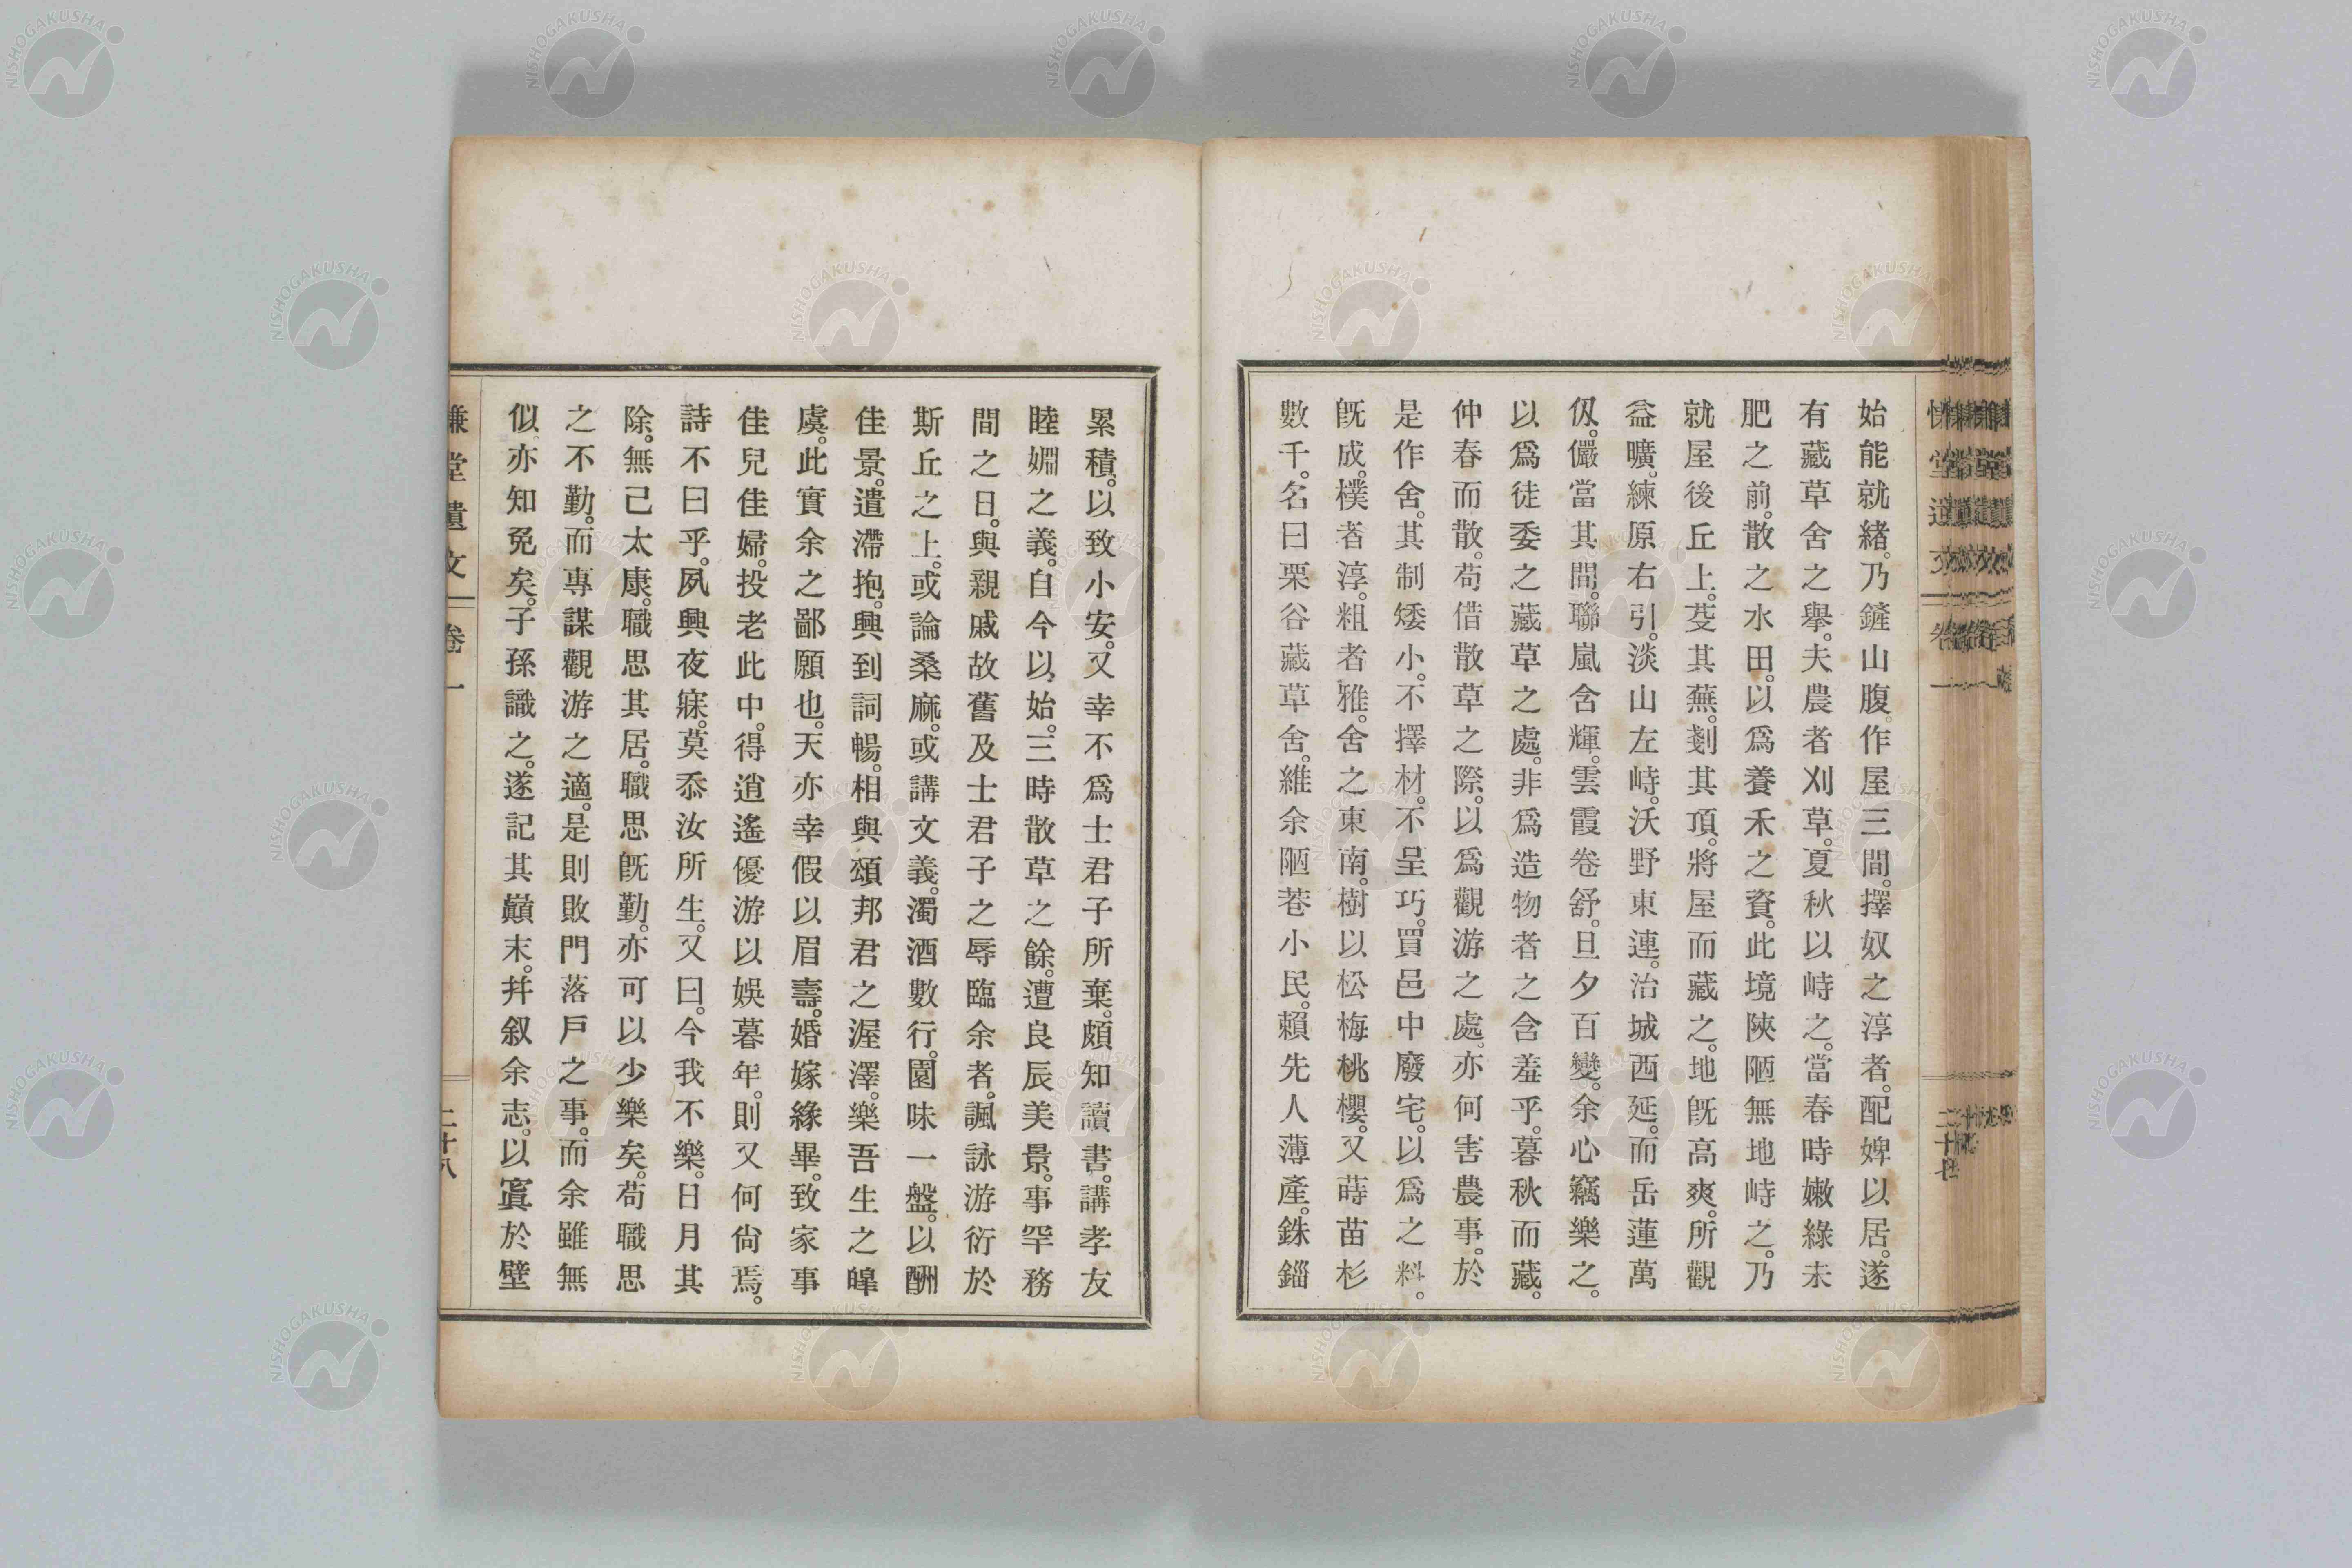 始能就緒。乃鏟山腹。作屋三間。擇奴之淳者。配婢以居。遂
有藏草舍之擧。夫農者刈草。夏秋以峙之。當春時嫩綠未
肥之前。散之水田。以爲養禾之資。此境陜陋無地峙之。乃
就屋後丘上。芟其蕪。剗其頂。將屋而藏之。地旣高爽。所觀
益曠。練原右引。淡山左峙。沃野東連。治城西延。而岳蓮萬
仭。儼當其間。聯嵐含輝。雲霞卷舒。旦夕百變。余心竊樂之。
以爲徒委之藏草之處。非爲造物者之含羞乎。暮秋而藏。
仲春而散。苟借散草之際。以爲觀游之處。亦何害農事。於
是作舍。其制矮小。不擇材。不呈巧。買邑中廢宅。以爲之料。
旣成。樸者淳。粗者雅。舍之東南。樹以松梅桃櫻。又蒔苗杉
數千。名曰栗谷藏草舍。維余陋巷小民。賴先人薄產。銖錙
累積。以致小安。又幸不爲士君子所棄。頗知讀書。講孝友
睦婣之義。自今以始。三時散草之餘。遭良辰美景。事罕務
間之日。與親戚故舊及士君子之辱臨余者。諷詠游衍於
斯丘之上。或論桑麻。或講文義。濁酒數行。園味一盤。以酬
佳景。遣滯抱。興到詞暢。相與頌邦君之渥澤。樂吾生之皥
虞。此實余之鄙願也。天亦幸假以眉壽。婚嫁緣畢。致家事
佳兒佳婦。投老此中。得逍遙優游以娛暮年。則又何尙焉。
詩不曰乎。夙興夜寐。莫忝汝所生。又曰。今我不樂。日月其
除。無已太康。職思其居。職思旣勤。亦可以少樂矣。苟職思
之不勤。而專謀觀游之適。是則敗門落戶之事。而余雖無
似。亦知免矣。子孫識之。遂記其巓末。幷叙余志。以寘於壁
慊堂遺文 卷一 二十八
NISHOGAKUSHA